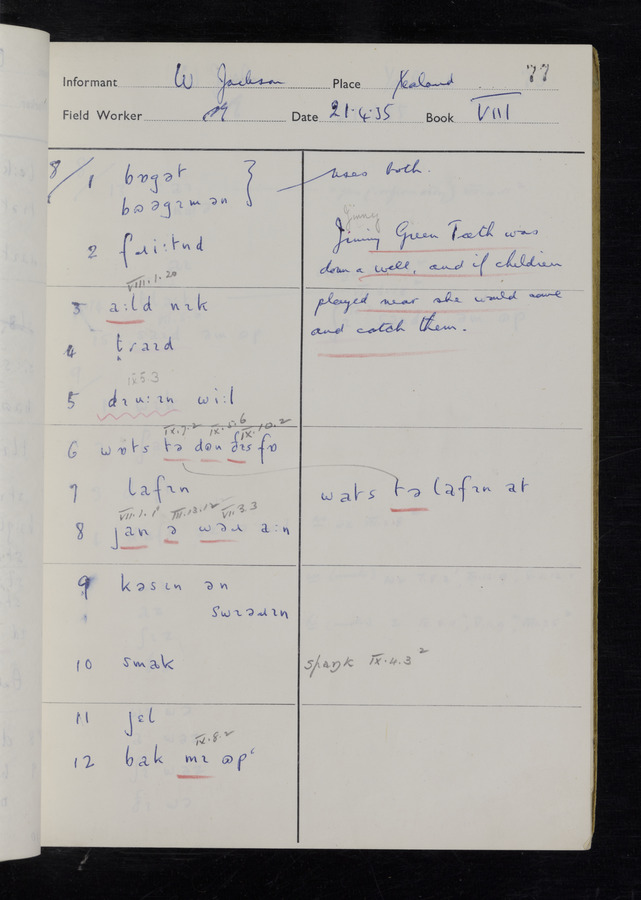 77
Informant W Jackson Place Yealand
Field Worker Date 21.4.35 Book VIII
8/ 1 bɒgət } uses both.
bɒəgɪmən
2 fɹiːtnd
Jinny
Jinny Green Teeth was
down a well, and if children
played near she would come
and catch them.
VIII.1.20
3 aːld nɪk
4 tɹaɪd
IX5.3
5 dɪuːɪn wiːl
IX.7.2 IX.5.6 IX.10.2
6 wɒts tə dən ðɪs fɒ
7 lafɪn wats tə lafɪn at
VII.1.1 III.13.12 VI.3.3
8 jan ə wəɹ aːn
9 kəsɪn ən
swɪəɹɪn
10 smak spaŋk IX.4.3 2
11 jɛl
12 bak mɪ ɷpʻ
IX.8.2